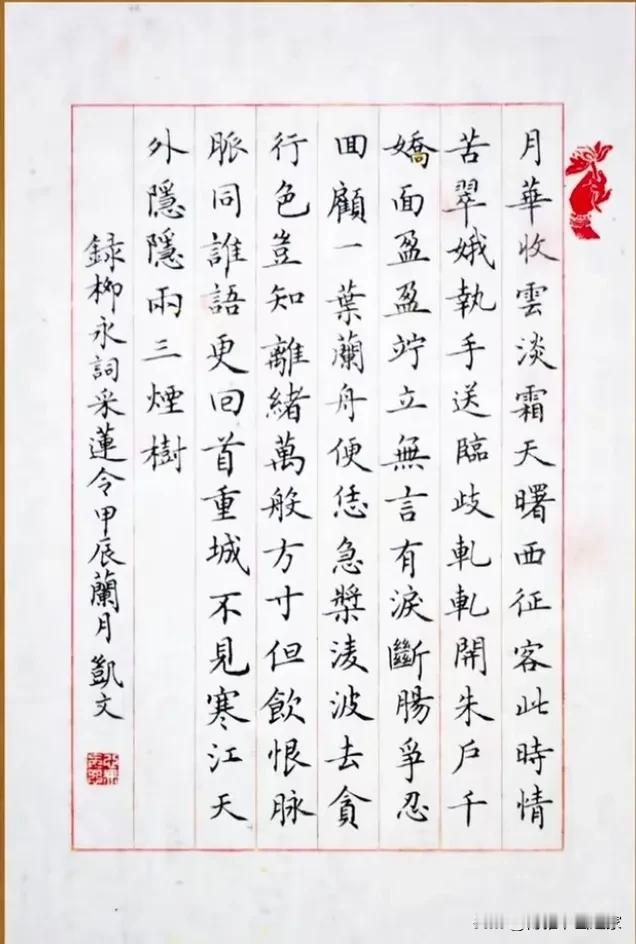 月華收雲淡霜天曙西征客此時情
苦翠娥執手送臨歧軋軋開朱戶千
嬌面盈盈竚立無言有淚斷腸爭忍
回顧一葉蘭舟便恁急槳淩波去貪
行色豈知離緒萬般方寸但飲恨脉
脈同誰語更回首重城不見寒江天
外隱隱兩三煙樹
錄柳永詞采蓮令甲辰蘭月凱文